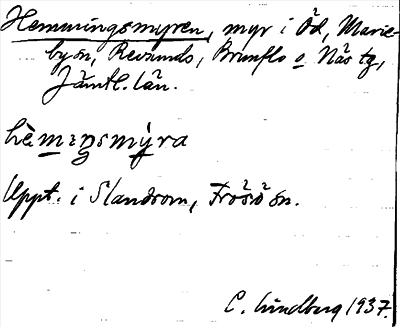 Hemmingsmyren, myr i Öd, Marie-
by sn, Revsunds, Brunflo o Näs tg,
Jämtl. län.
hèmıŋsmỳra
Uppt. i Slandrom, Frösö sn.
C. Lindberg 1937.